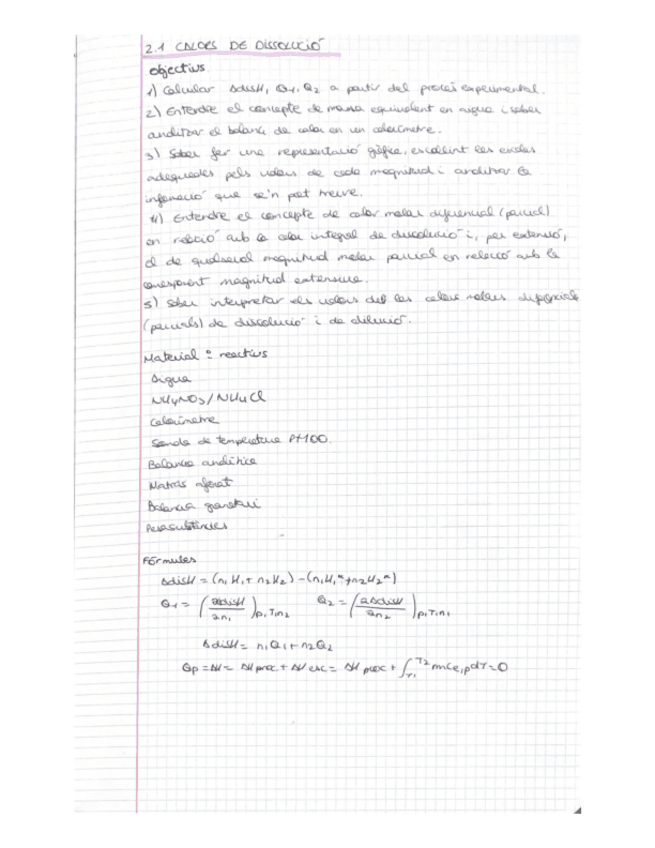 2.1 CALORS DE DISSOLUCIÓ
Objectius
1) Calcular ΔdisH, Q1, Q2 a partir del procés experimental.
2) Entendre el concepte de massa equivalent en aigua i saber
analitzar el balanç de calor en un calorímetre.
3) Saber fer una representació gràfica, escollint les escales
adequades pels valors de cada magnitud i analitzar la
informació que se'n pot treure.
4) Entendre el concepte de calor molar diferencial (parcial)
en relació amb la calor integral de dissolució i, per extensió,
el de qualsevol magnitud molar parcial en relació amb la
corresponent magnitud extensiva.
5) Saber interpretar els valors del les calors molars diferencials
(parcials) de dissolució i de dilució.
Material i reactius
Aigua
NH4NO3/NH4Cl
Calorímetre
Sonda de temperatura Pt100.
Balança analítica
Matràs aforat
Balança granatari
Pesasubstàncies
Fórmules
ΔdisH = (n1H1 + n2H2) - (n1H1* + n2H2*)
Q1 = (∂ΔdisH/∂n1)p,T,n2 Q2 = (∂ΔdisH/∂n2)p,T,n1
ΔdisH = n1Q1 + n2Q2
Qp = ΔH = ΔH proc + ΔH esc = ΔH proc + ∫T1T2 mce,pdT = 0